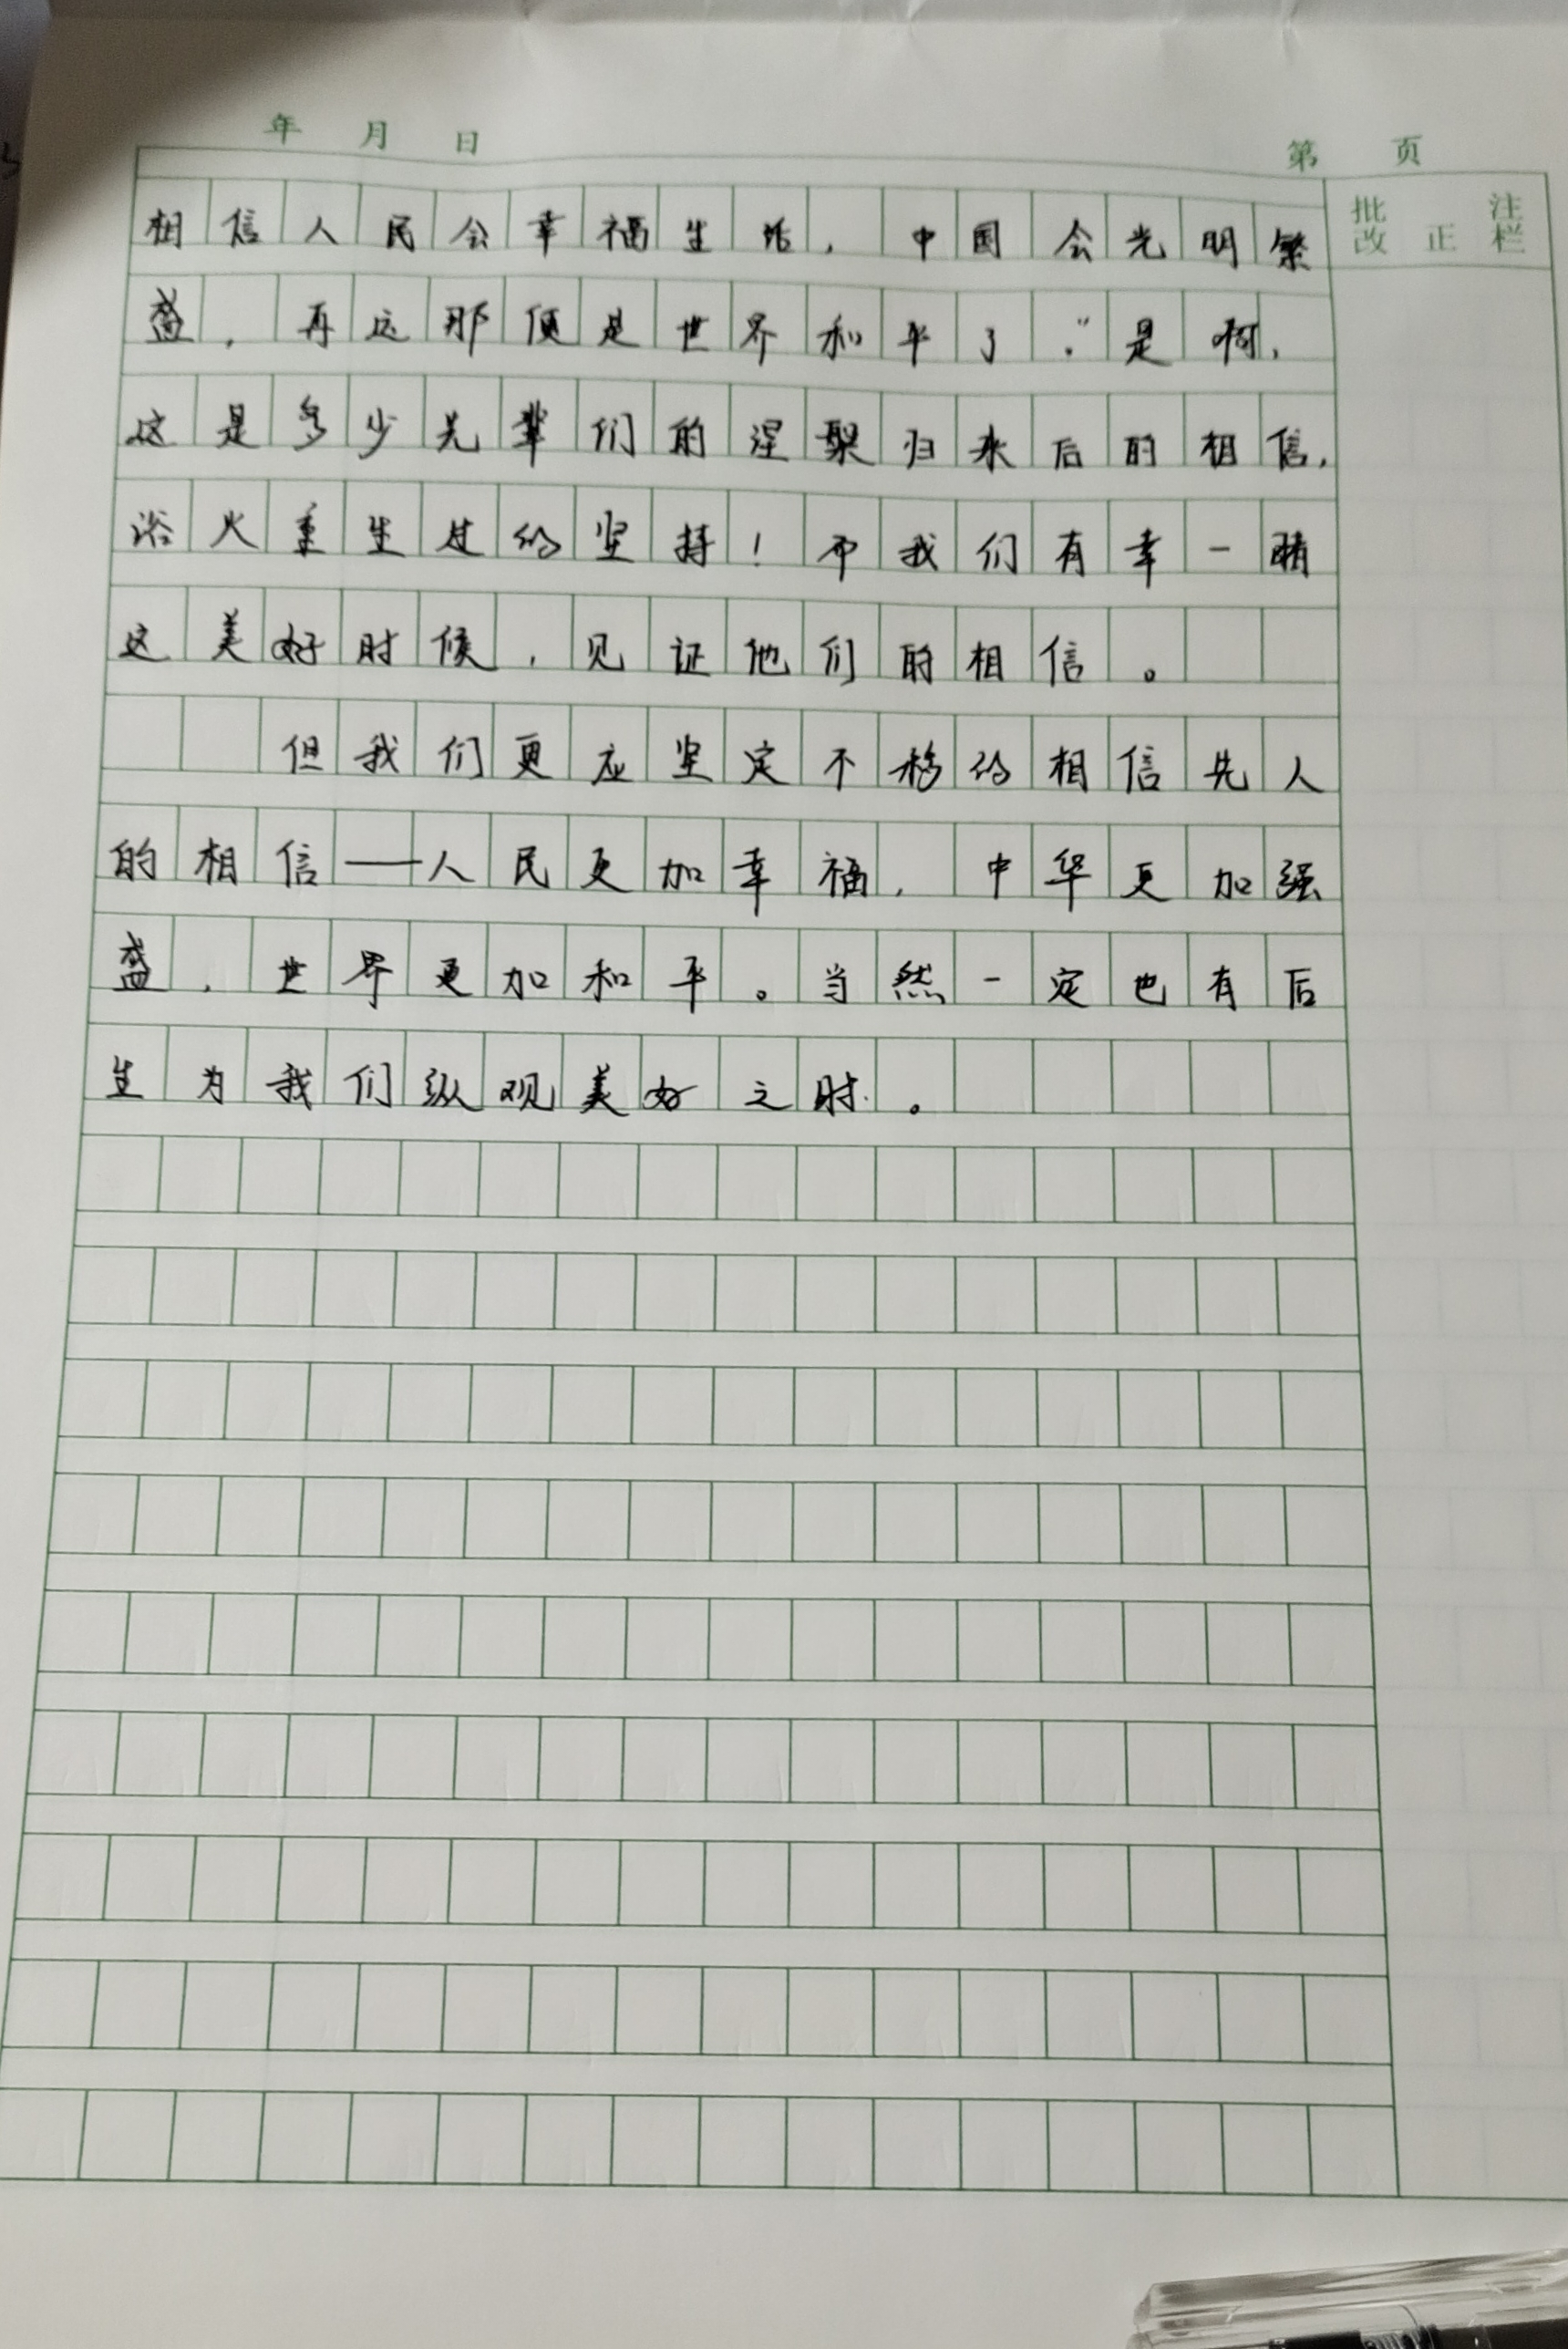 年 月 日
第 页
批 注
改 正 栏
相信人民会幸福生活，中国会光明繁
盛，再远那便是世界和平了。”是啊，
这是多少先辈们的涅槃归来后的相信，
浴火重生过的坚持！而我们有幸一睛
这美好时候，见证他们的相信。
但我们更应坚定不移的相信先人
的相信——人民更加幸福，中华更加强
盛，世界更加和平。当然一定也有后
生为我们纵观美好之时。